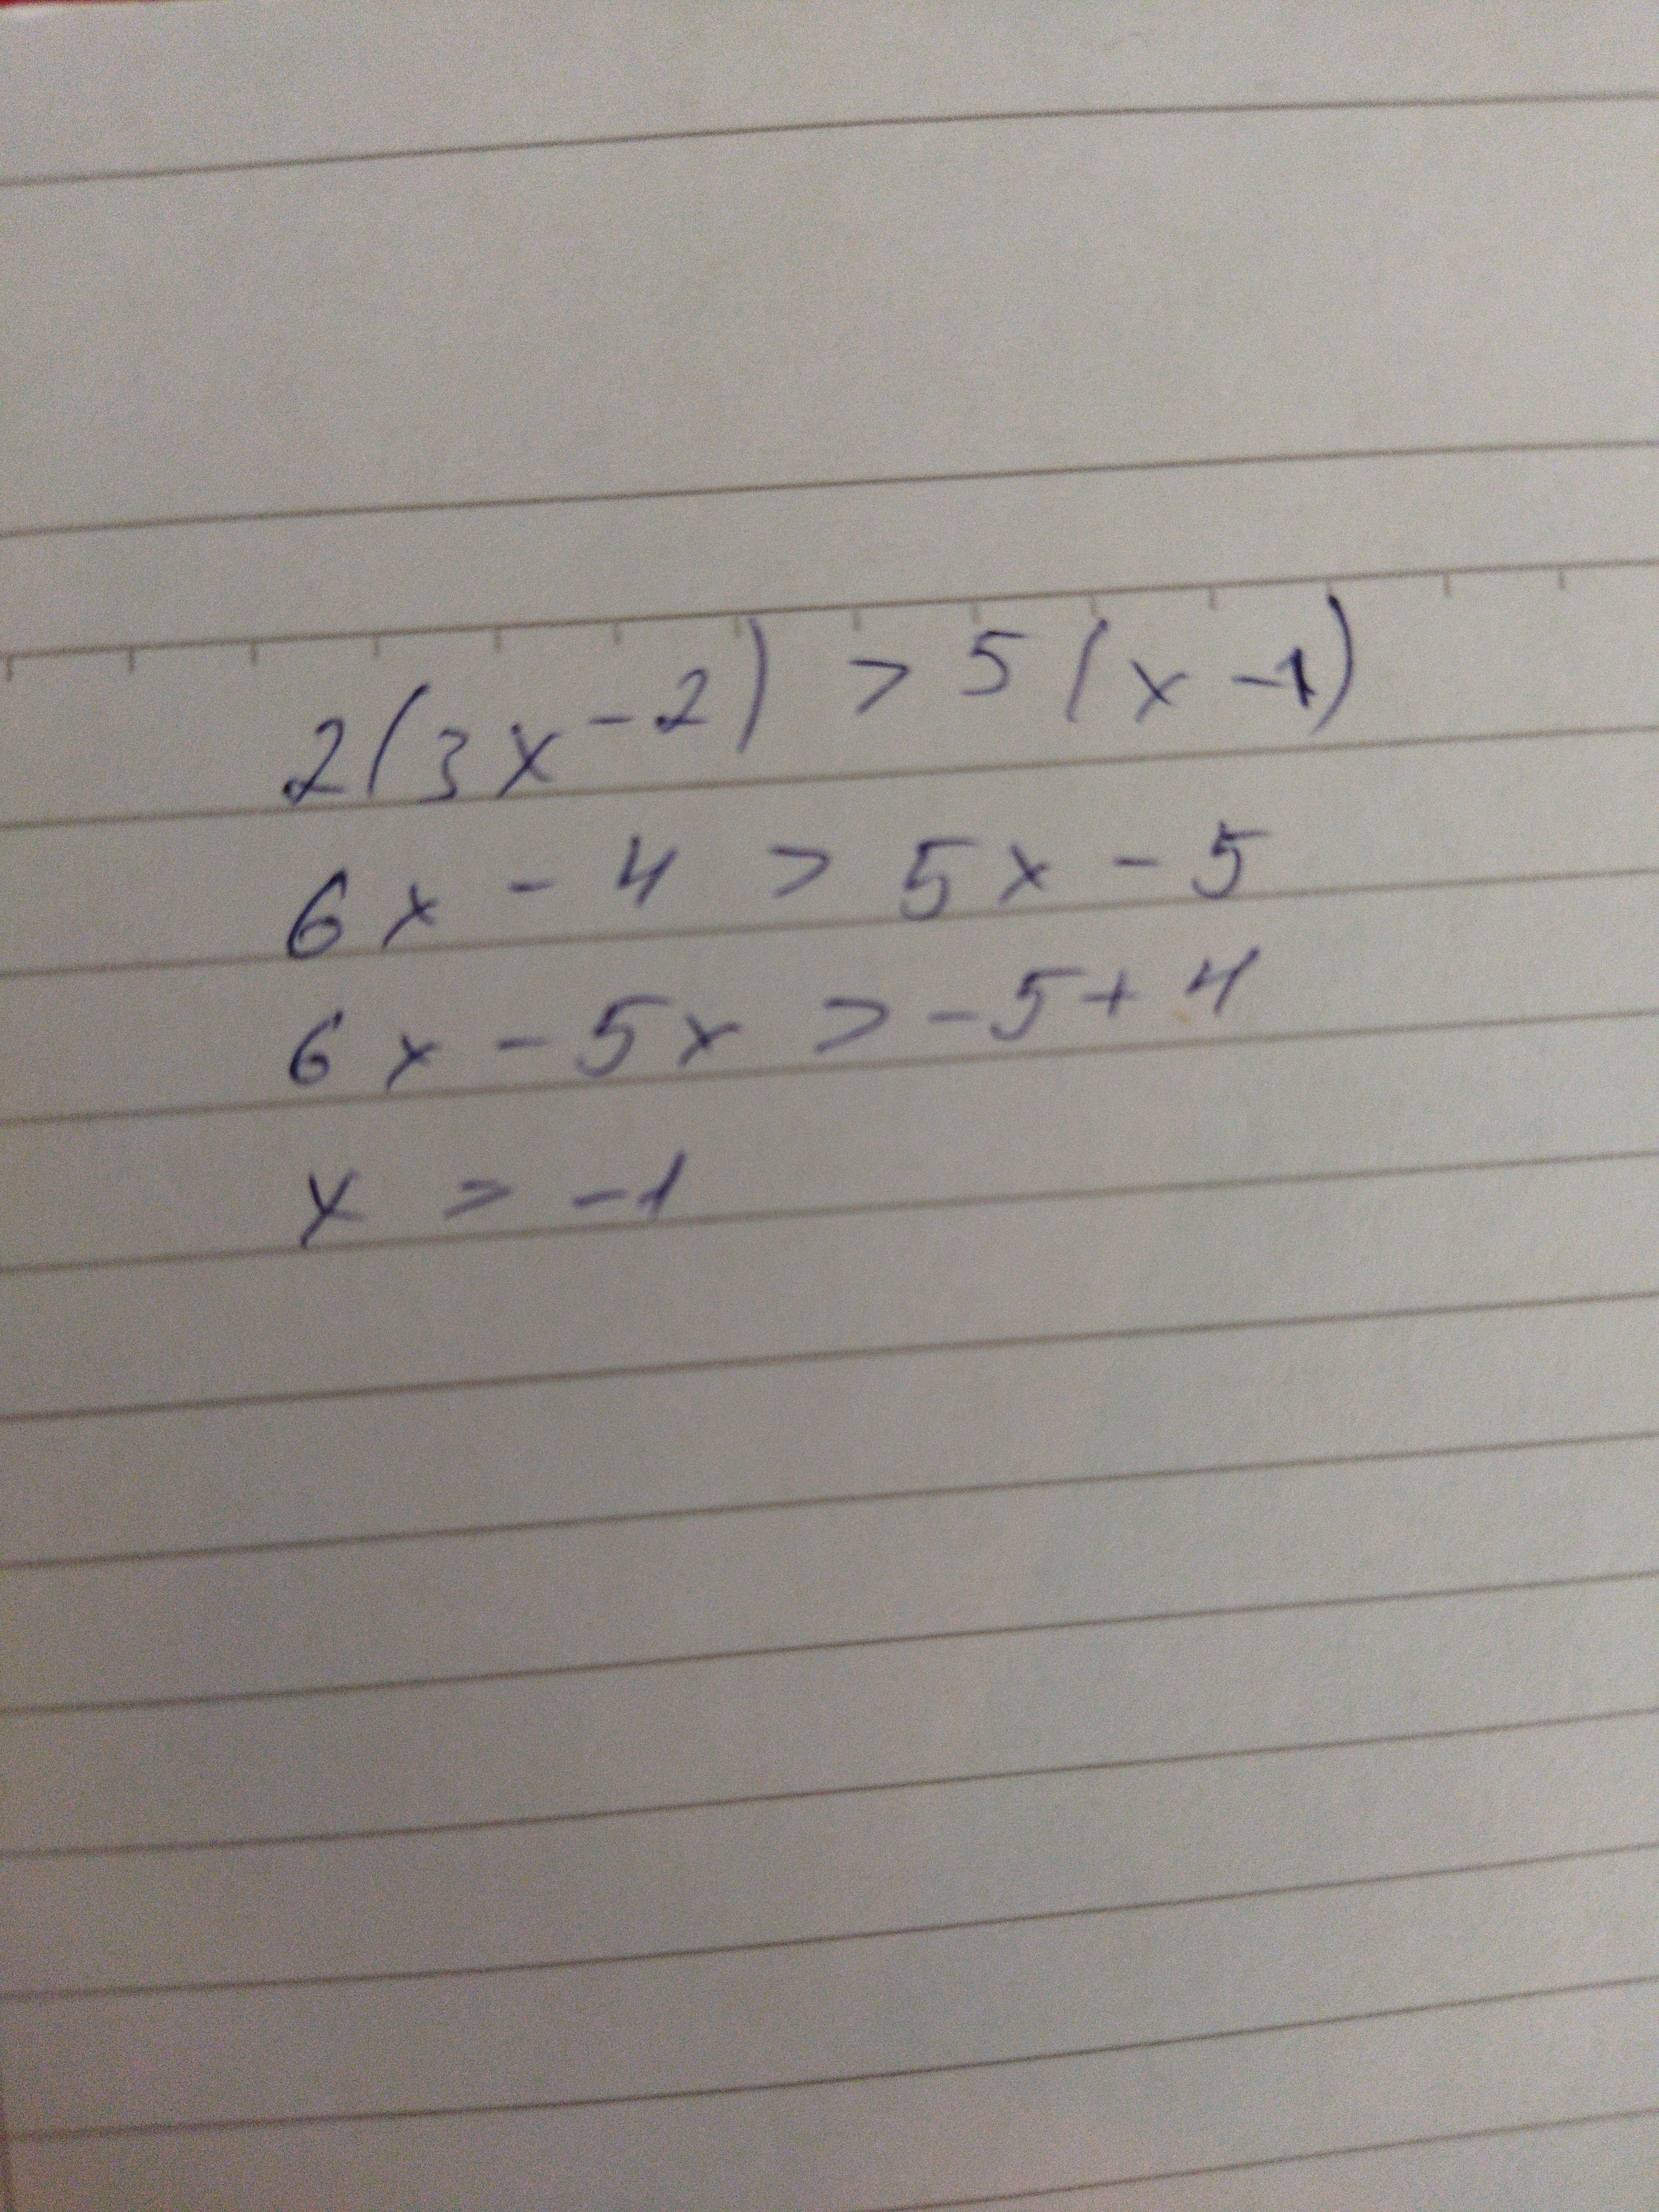 2(3x-2) > 5(x-1)
6x - 4 > 5x - 5
6x - 5x > -5 + 4
x > -1